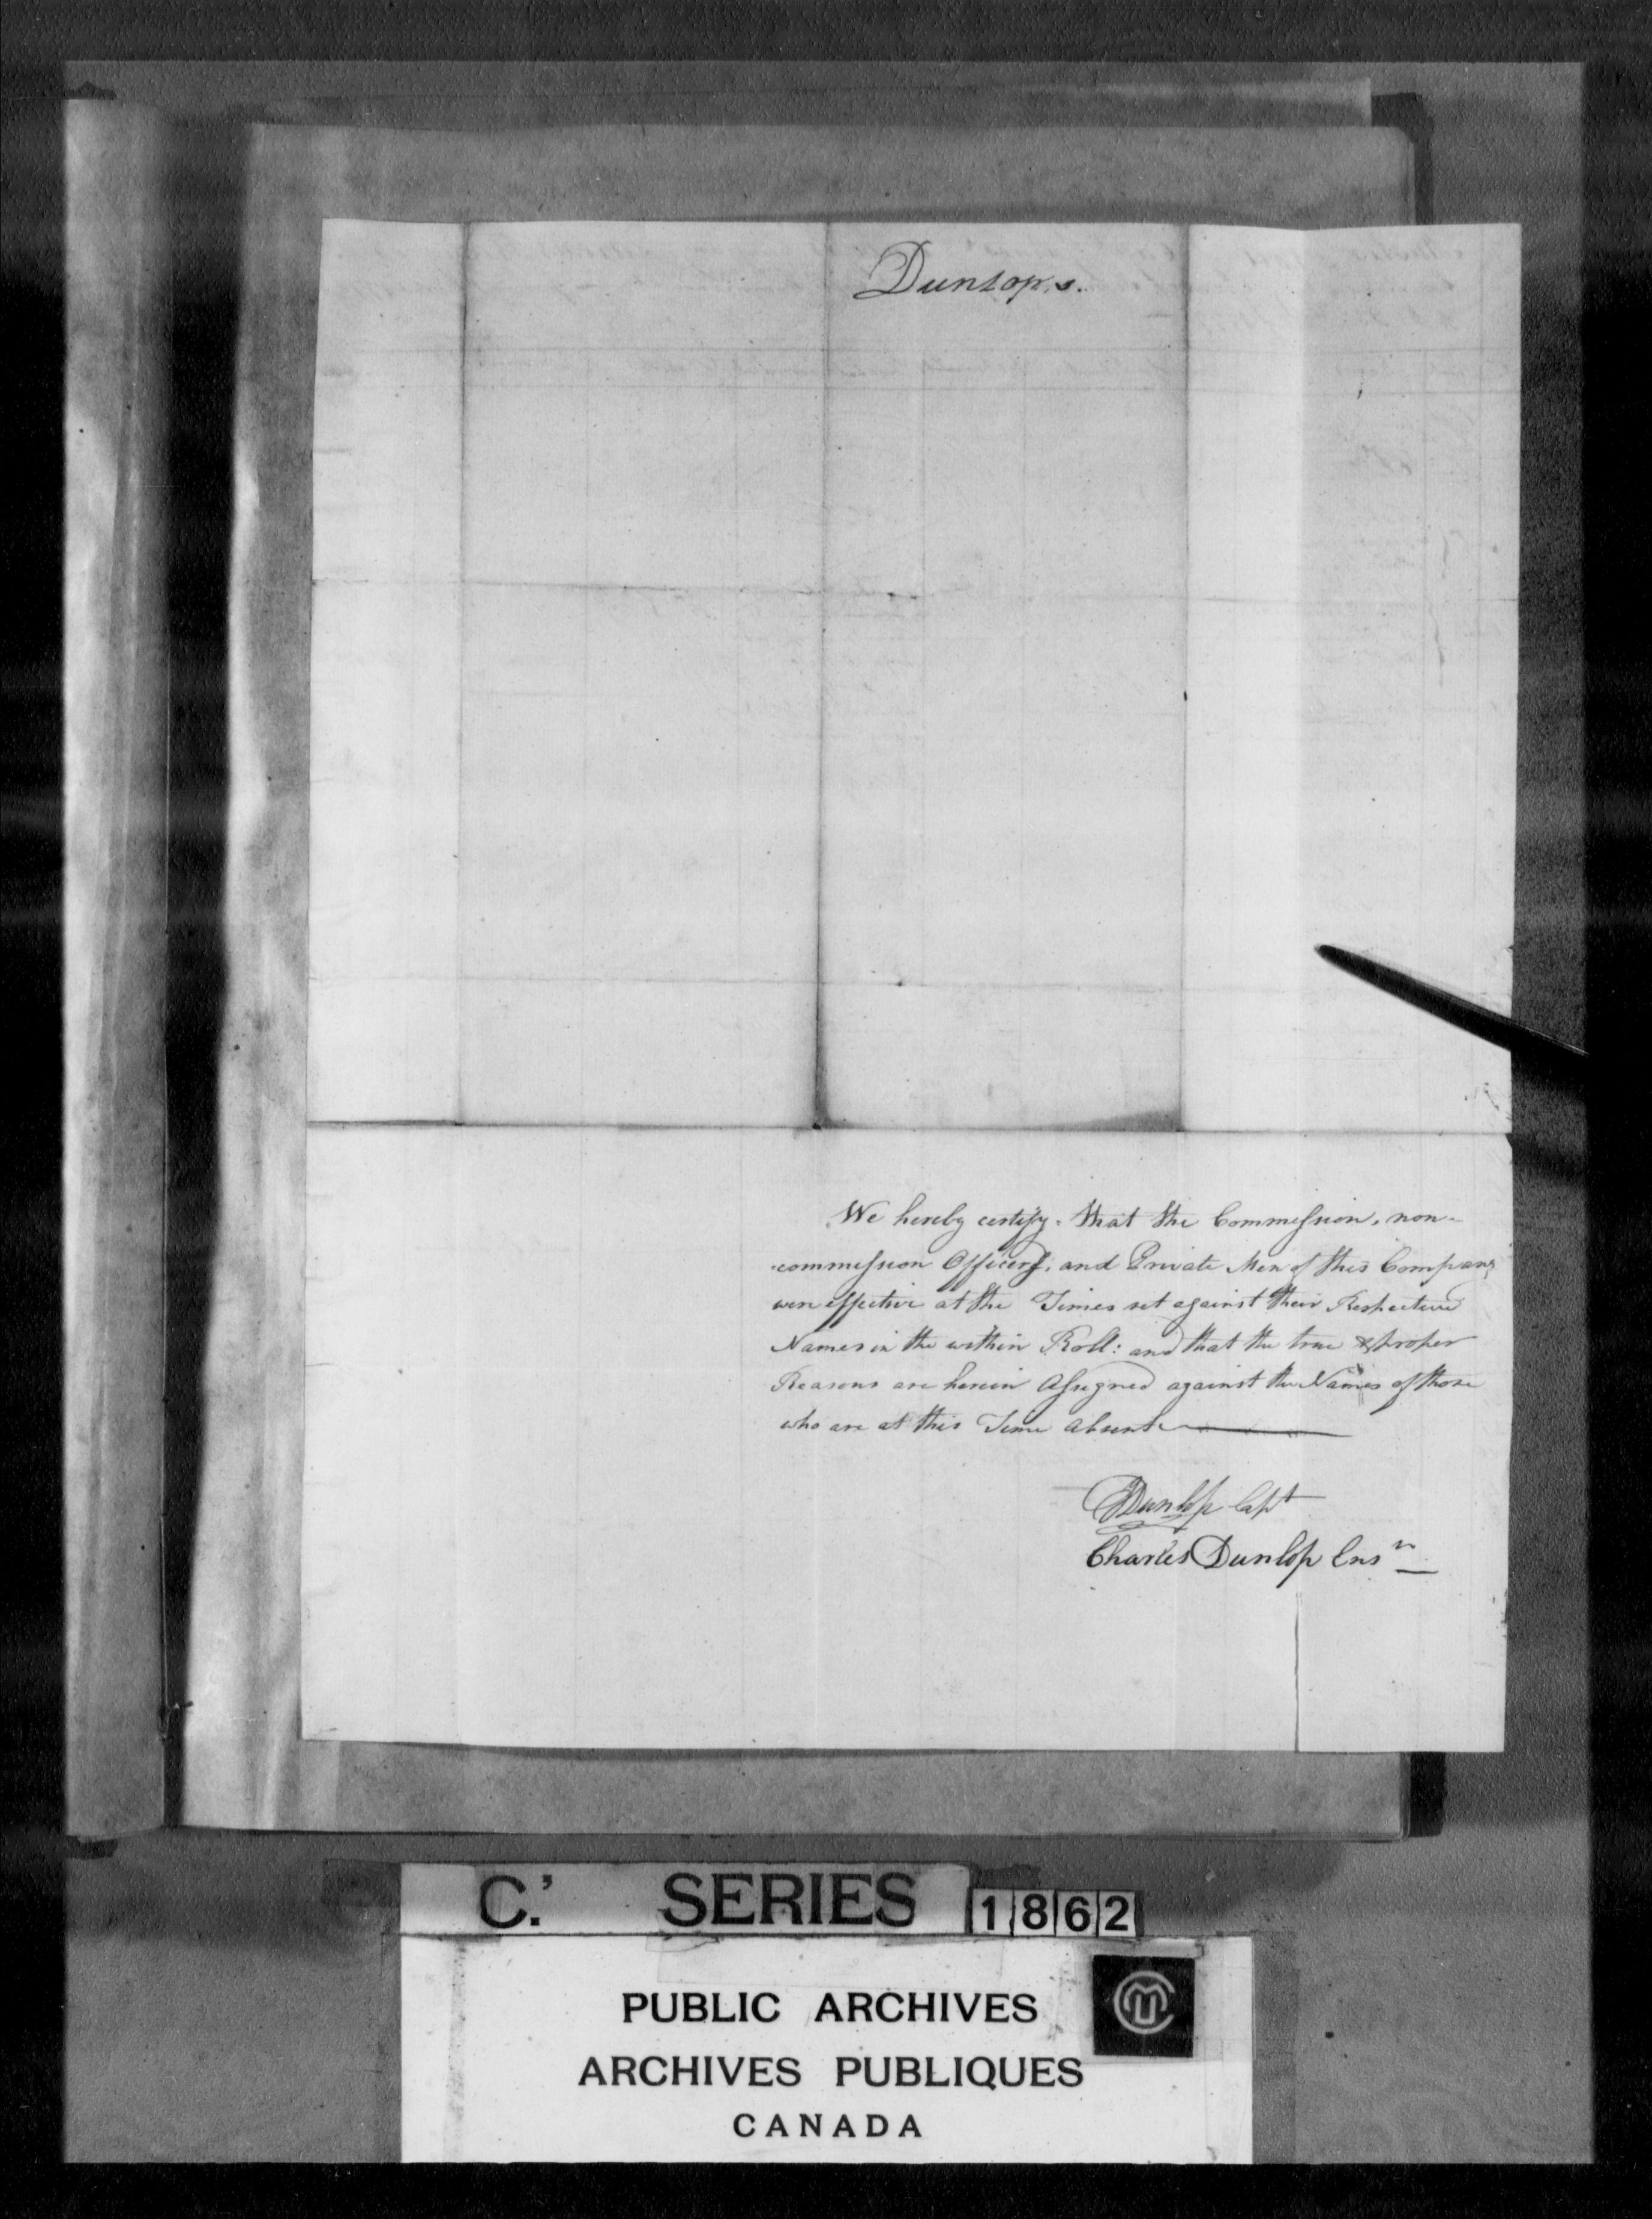 Dunlop,s.
We hereby certify. that the Commission, non-
-commission Officers, and Private Men of this Company
were effective at the Times set against their Respective
Names in the within Roll: and that the true & proper
Reasons are herein Assigned against the Names of those
who are at this Time Absent
Dunlop Capt
Charles Dunlop Ensn
C.' SERIES 1862
PUBLIC ARCHIVES
ARCHIVES PUBLIQUES
CANADA